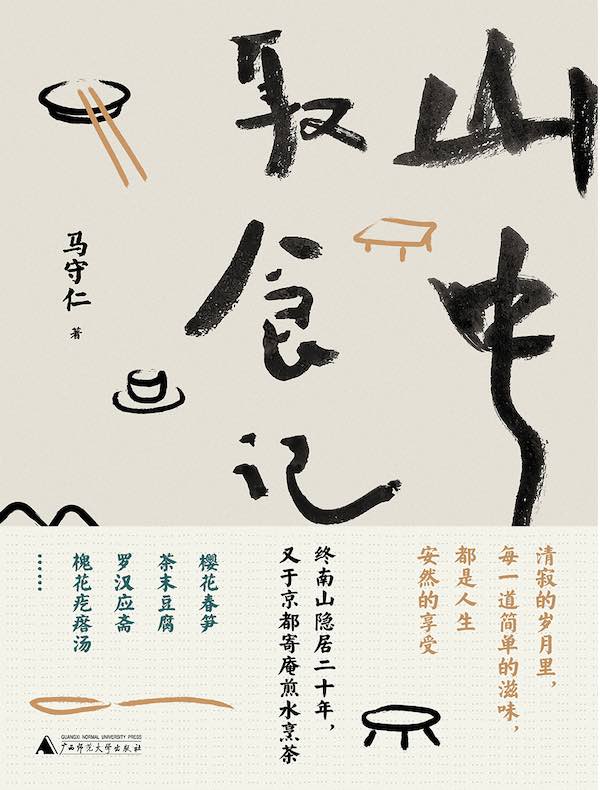 山中
取食记
马守仁 著
清寂的岁月里，
每一道简单的滋味，
都是人生
安然的享受
终南山隐居二十年，
又于京都寄庵煎水烹茶
樱花春笋
茶末豆腐
罗汉应斋
槐花疙瘩汤
……
GUANGXI NORMAL UNIVERSITY PRESS
广西师范大学出版社